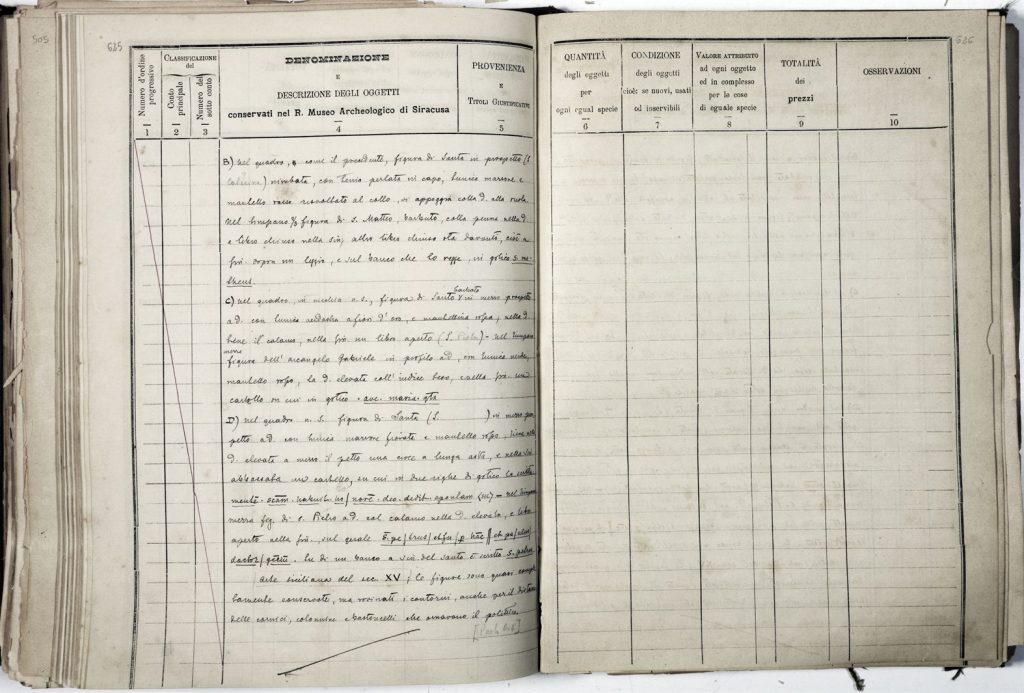 505
625
Numero d'ordine progressivo
1
CLASSIFICAZIONE
del
Conto principale
2
Numero del sotto conto
3
DENOMINAZIONE
E
DESCRIZIONE DEGLI OGGETTI
conservati nel R. Museo Archeologico di Siracusa
4
PROVENIENZA
E
TITOLI GIUSTIFICATIVI
5
B) nel quadro, come il precedente, figura di Santa in prospetto (S.
Caterina) nimbata, con tenia perlata in capo, tunica marrone e
mantello rosso risvoltato al collo, si appoggia colla d. alla ruota.
Nel timpano ½ figura di S. Matteo, barbuto, colla penna nella d.
e libro chiuso nella sin; altro libro chiuso sta davanti, cioè a
sin. sopra un leggio, e sul banco che lo regge, in gotico s. ma-
theus.
C) nel quadro, in nicchia c. s., figura di Santo barbato in mezzo prospetto
a d. con tunica verdastra a fiori d'oro, e mantellina rossa, nella d.
tiene il calamo, nella sin. un libro aperto (S. Paolo) - nel timpano
mezza figura dell'arcangelo Gabriele in profilo a d, con tunica verde,
mantello rosso, la d. elevata coll'indice teso, e nella sin. un
cartello su cui in gotico . ave. maria. gtā
D) nel quadro c. s. figura di Santa (S. ) in mezzo pros-
petto a d. con tunica marrone fiorata e mantello rosso, tiene nella
d. elevata a mezzo il petto una croce a lunga asta, e nella sin.
abbassata un cartello, su cui in due righe di gotico
mentē. scām. deo. dedit. - nel timpano
mezza fig. di S. Pietro a d. col calamo nella d. elevata, e libro
aperto nella sin. sul quale
doctor/ Su di un banco a sin. del santo è scritto s. petrus
Arte siciliana del sec. XV; le figure sono quasi comple-
tamente conservate, ma rovinati i contorni, anche per il distacco
delle cornici, colonnine e bastoncelli che ornavano il polittico.
626
QUANTITÀ
degli oggetti
per
ogni egual specie
6
CONDIZIONE
degli oggetti
cioè: se nuovi, usati
od inservibili
7
VALORE ATTRIBUITO
ad ogni oggetto
ed in complesso
per le cose
di eguale specie
8
TOTALITÀ
dei
prezzi
9
OSSERVAZIONI
10